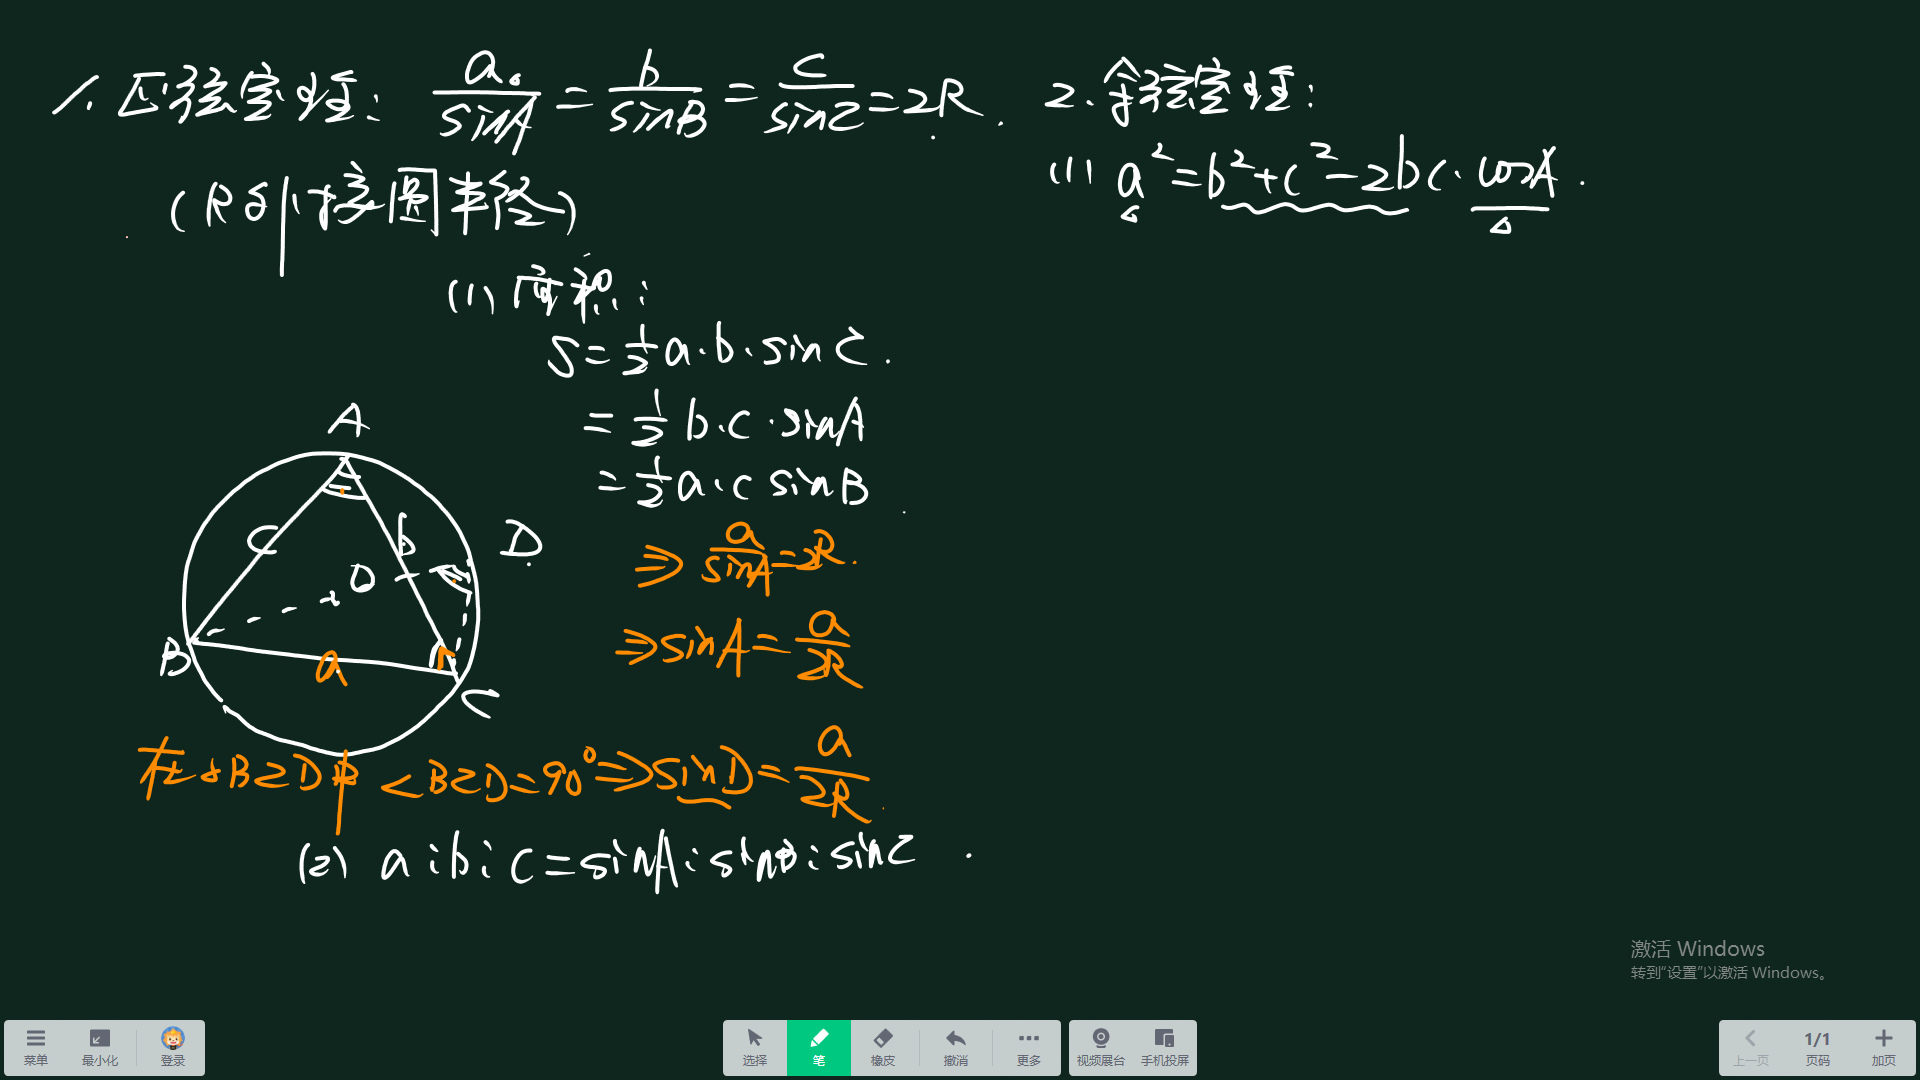 1. 正弦定理: a/sinA = b/sinB = c/sinC = 2R.
(R为外接圆半径)
(1) 面积:
S = 1/2 a·b·sinC.
= 1/2 b·c·sinA
= 1/2 a·c sinB
⇒ a/sinA = 2R.
⇒ sinA = a/2R
A
c
b
D
O
B
a
C
在△BCD中 ∠BCD=90° ⇒ sinD = a/2R.
(2) a:b:c = sinA:sinB:sinC.
2. 余弦定理:
(1) a² = b²+c²-2bc·cosA.
激活 Windows
转到“设置”以激活 Windows。
菜单 最小化 登录 选择 笔 橡皮 撤消 更多 视频展台 手机投屏 上一页 1/1 页码 加页